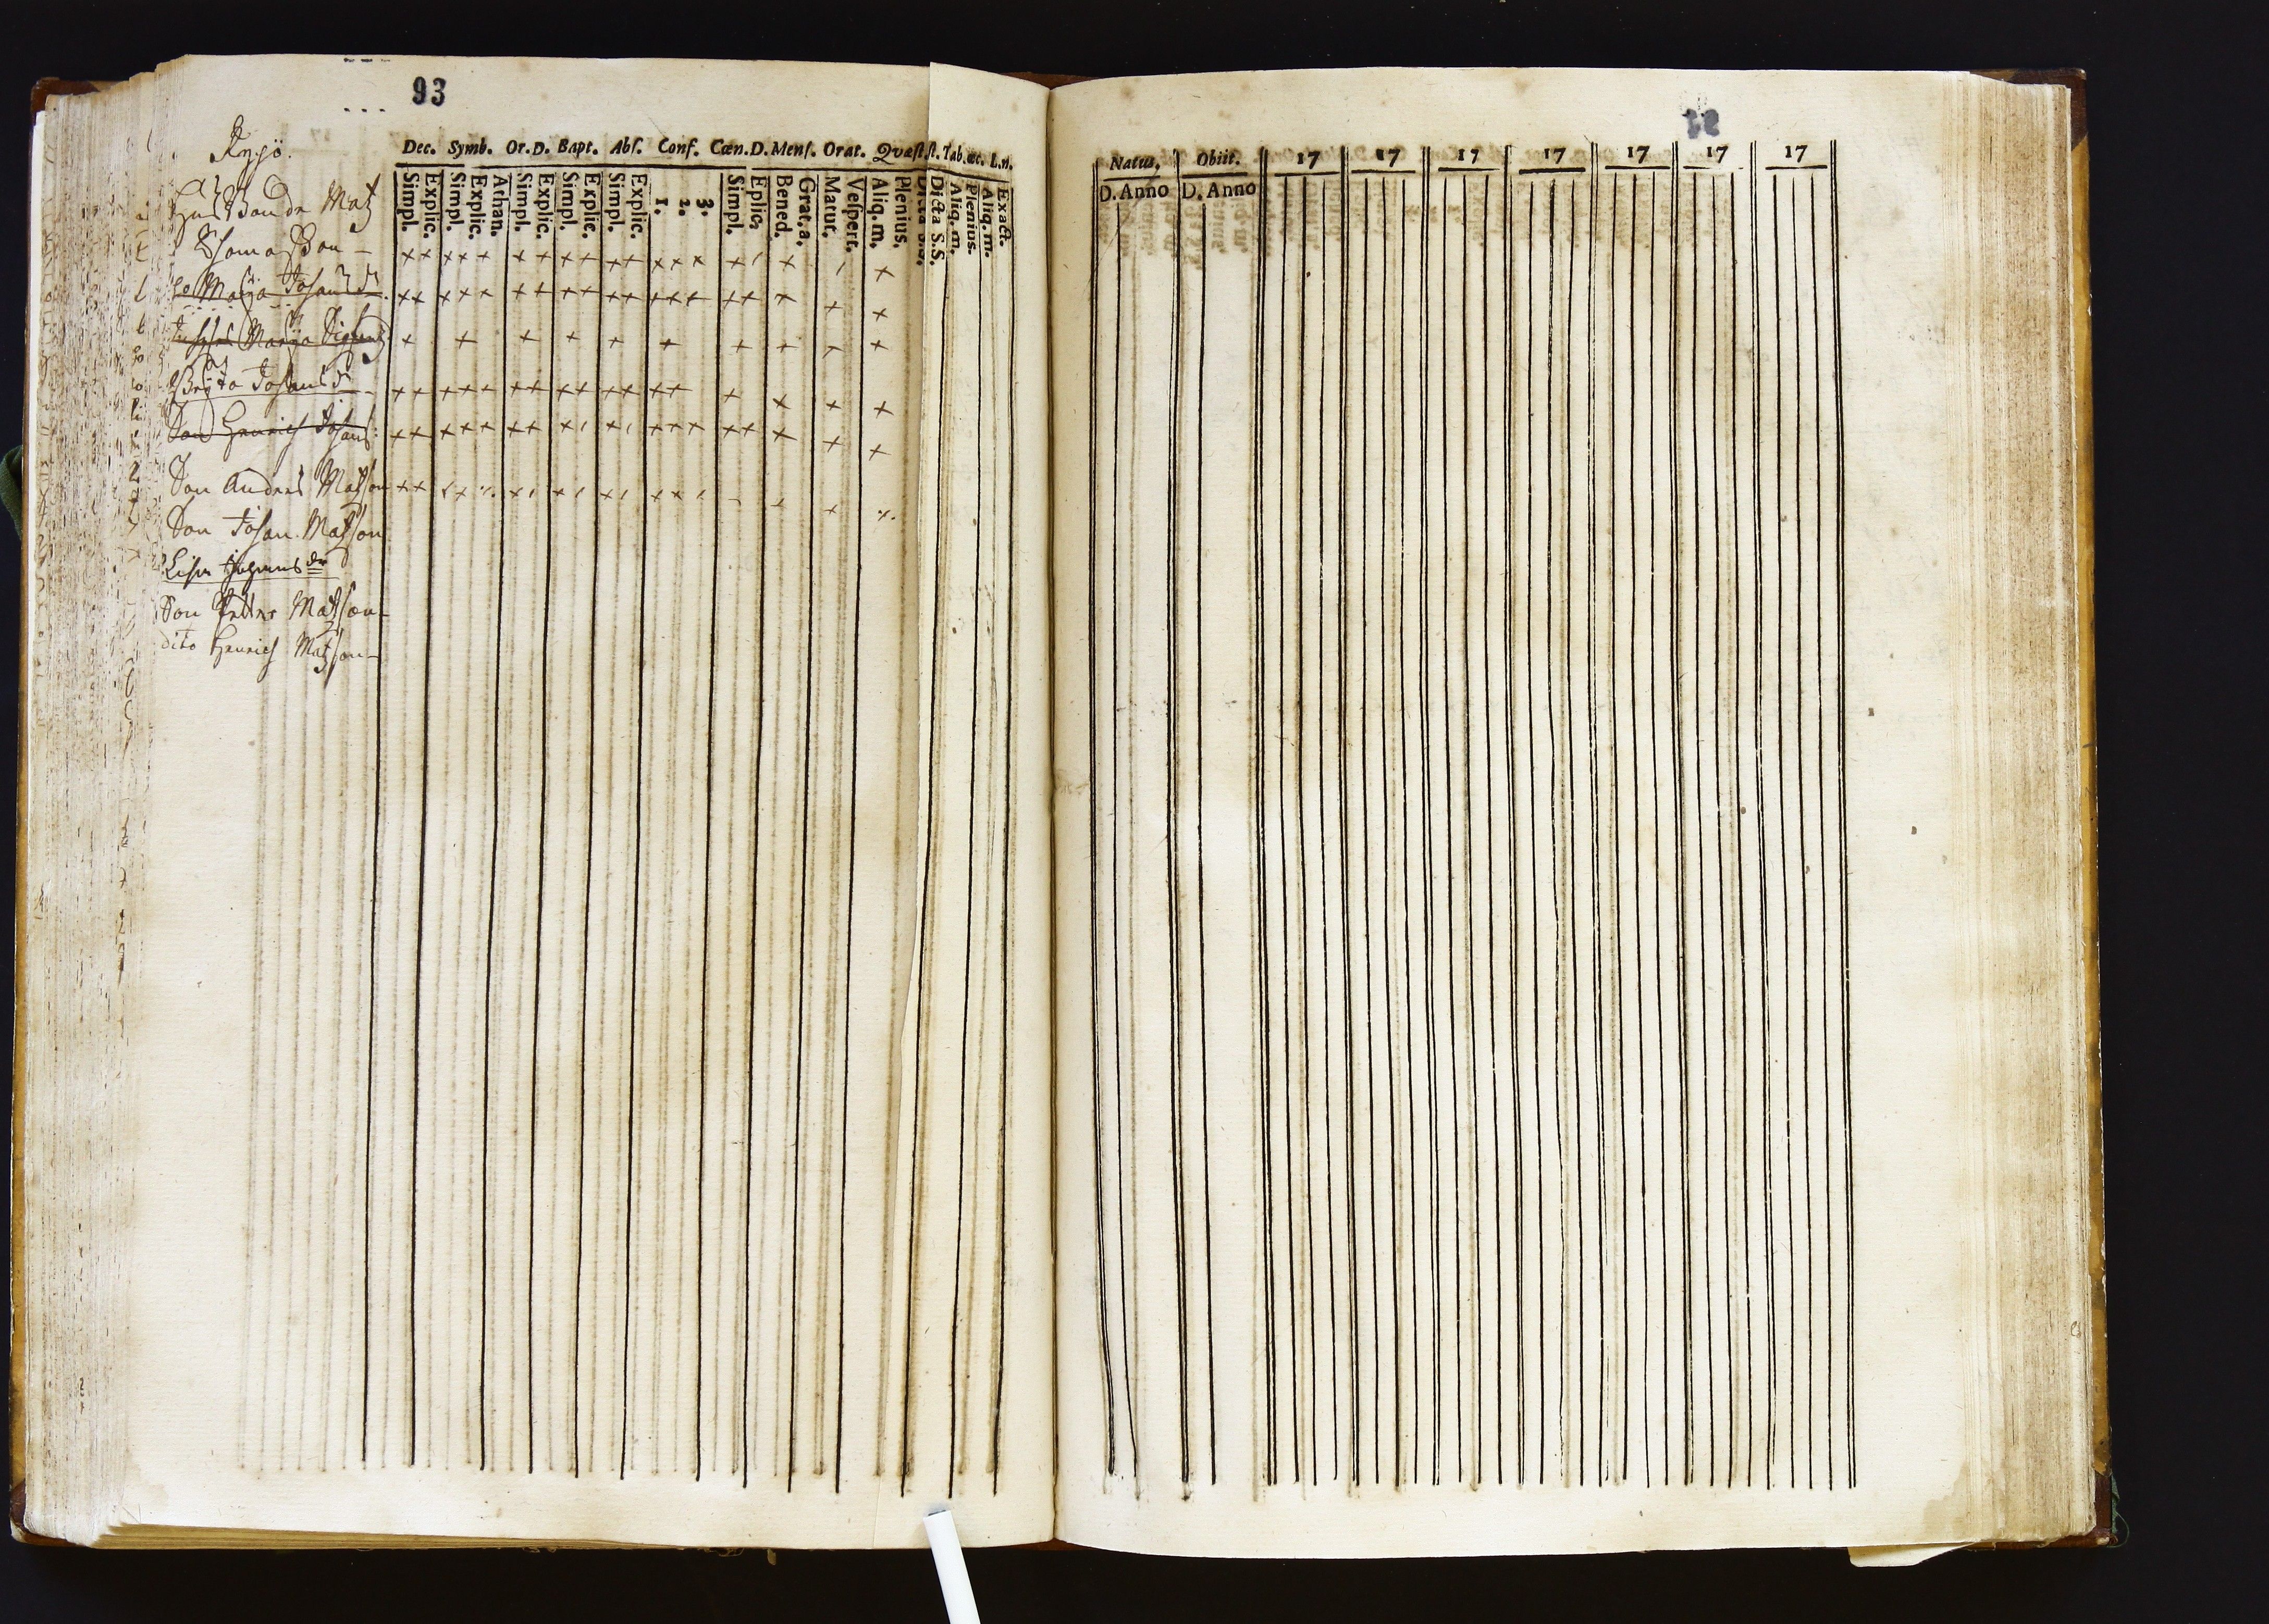 93
Dec. Symb. Or.D. Bapt. Abſ. Conf. Cœn.D. Menſ. Orat. Qvæſt ſt. Tab. œc. L.n.
Simpl. Explic. Simpl. Explic. Athan. Simpl. Explic. Simpl. Explic. Simpl. Explic. 1. 2. 3. Simpl. Eplic. Bened. Grat.a. Matut. Veſpert. Aliq.m. Plenius. Dicta S.S. Aliq.m. Plenius. Aliq.m. Exact.
Bonde Matz
Thomasson
Maja Johansdr
Maja
Brita Johansdr
Son Henrich Johans
Son Anders Matsson
Son Johan Matsson
Lisa
Son Petter Matsson
dito Henrich Matsson
Natus, Obiit. 17 17 17 17 17 17 17
D. Anno D. Anno